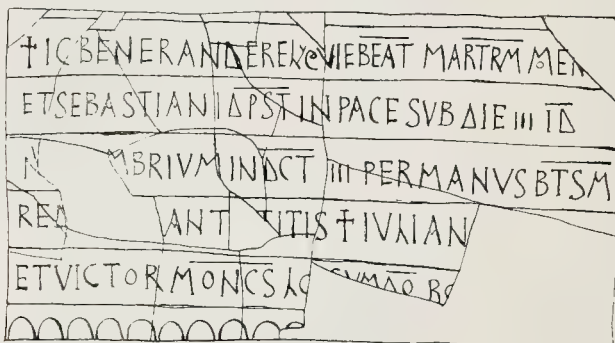 ✝IC BENERANDE RELIQVIE BEAT MARTRM MEN
ET SEBASTIANI DPST IN PACE SVB DIE III ID
MBRIVM INDCT III PER MANVS BTSM
RED ANT TITIS ✝ IVLIAN
ET VICTOR MONCS